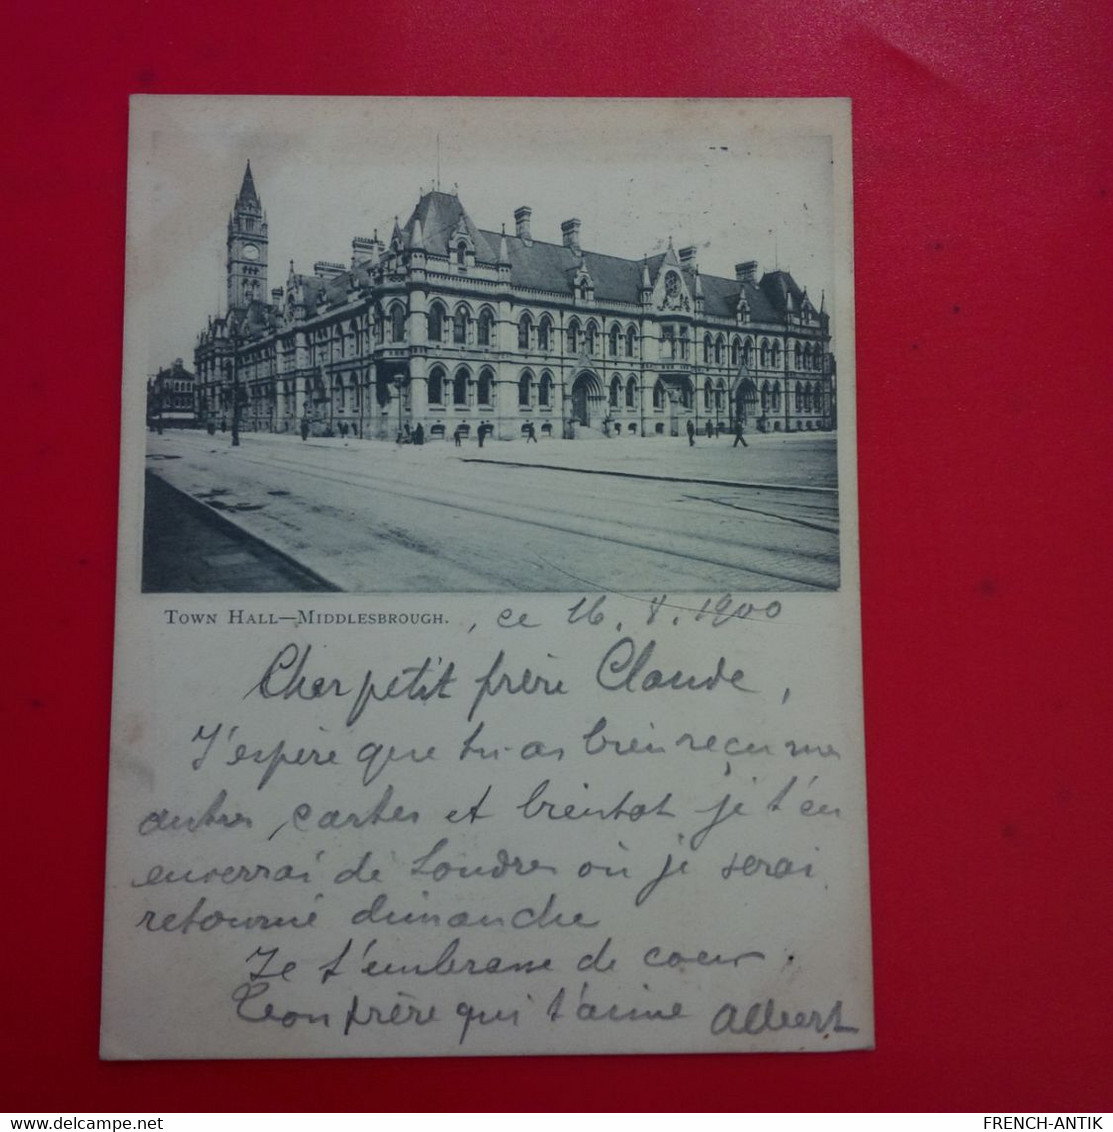 Town Hall—Middlesbrough. , ce 16.8.1900
Cher petit frère Claude,
J'espère que tu as bien reçu mes
autres cartes et bientot je t'en
enverrai de Londres où je serai
retourné dimanche
Je t'embrasse de coeur.
Ton frère qui t'aime Albert
FRENCH-ANTIK